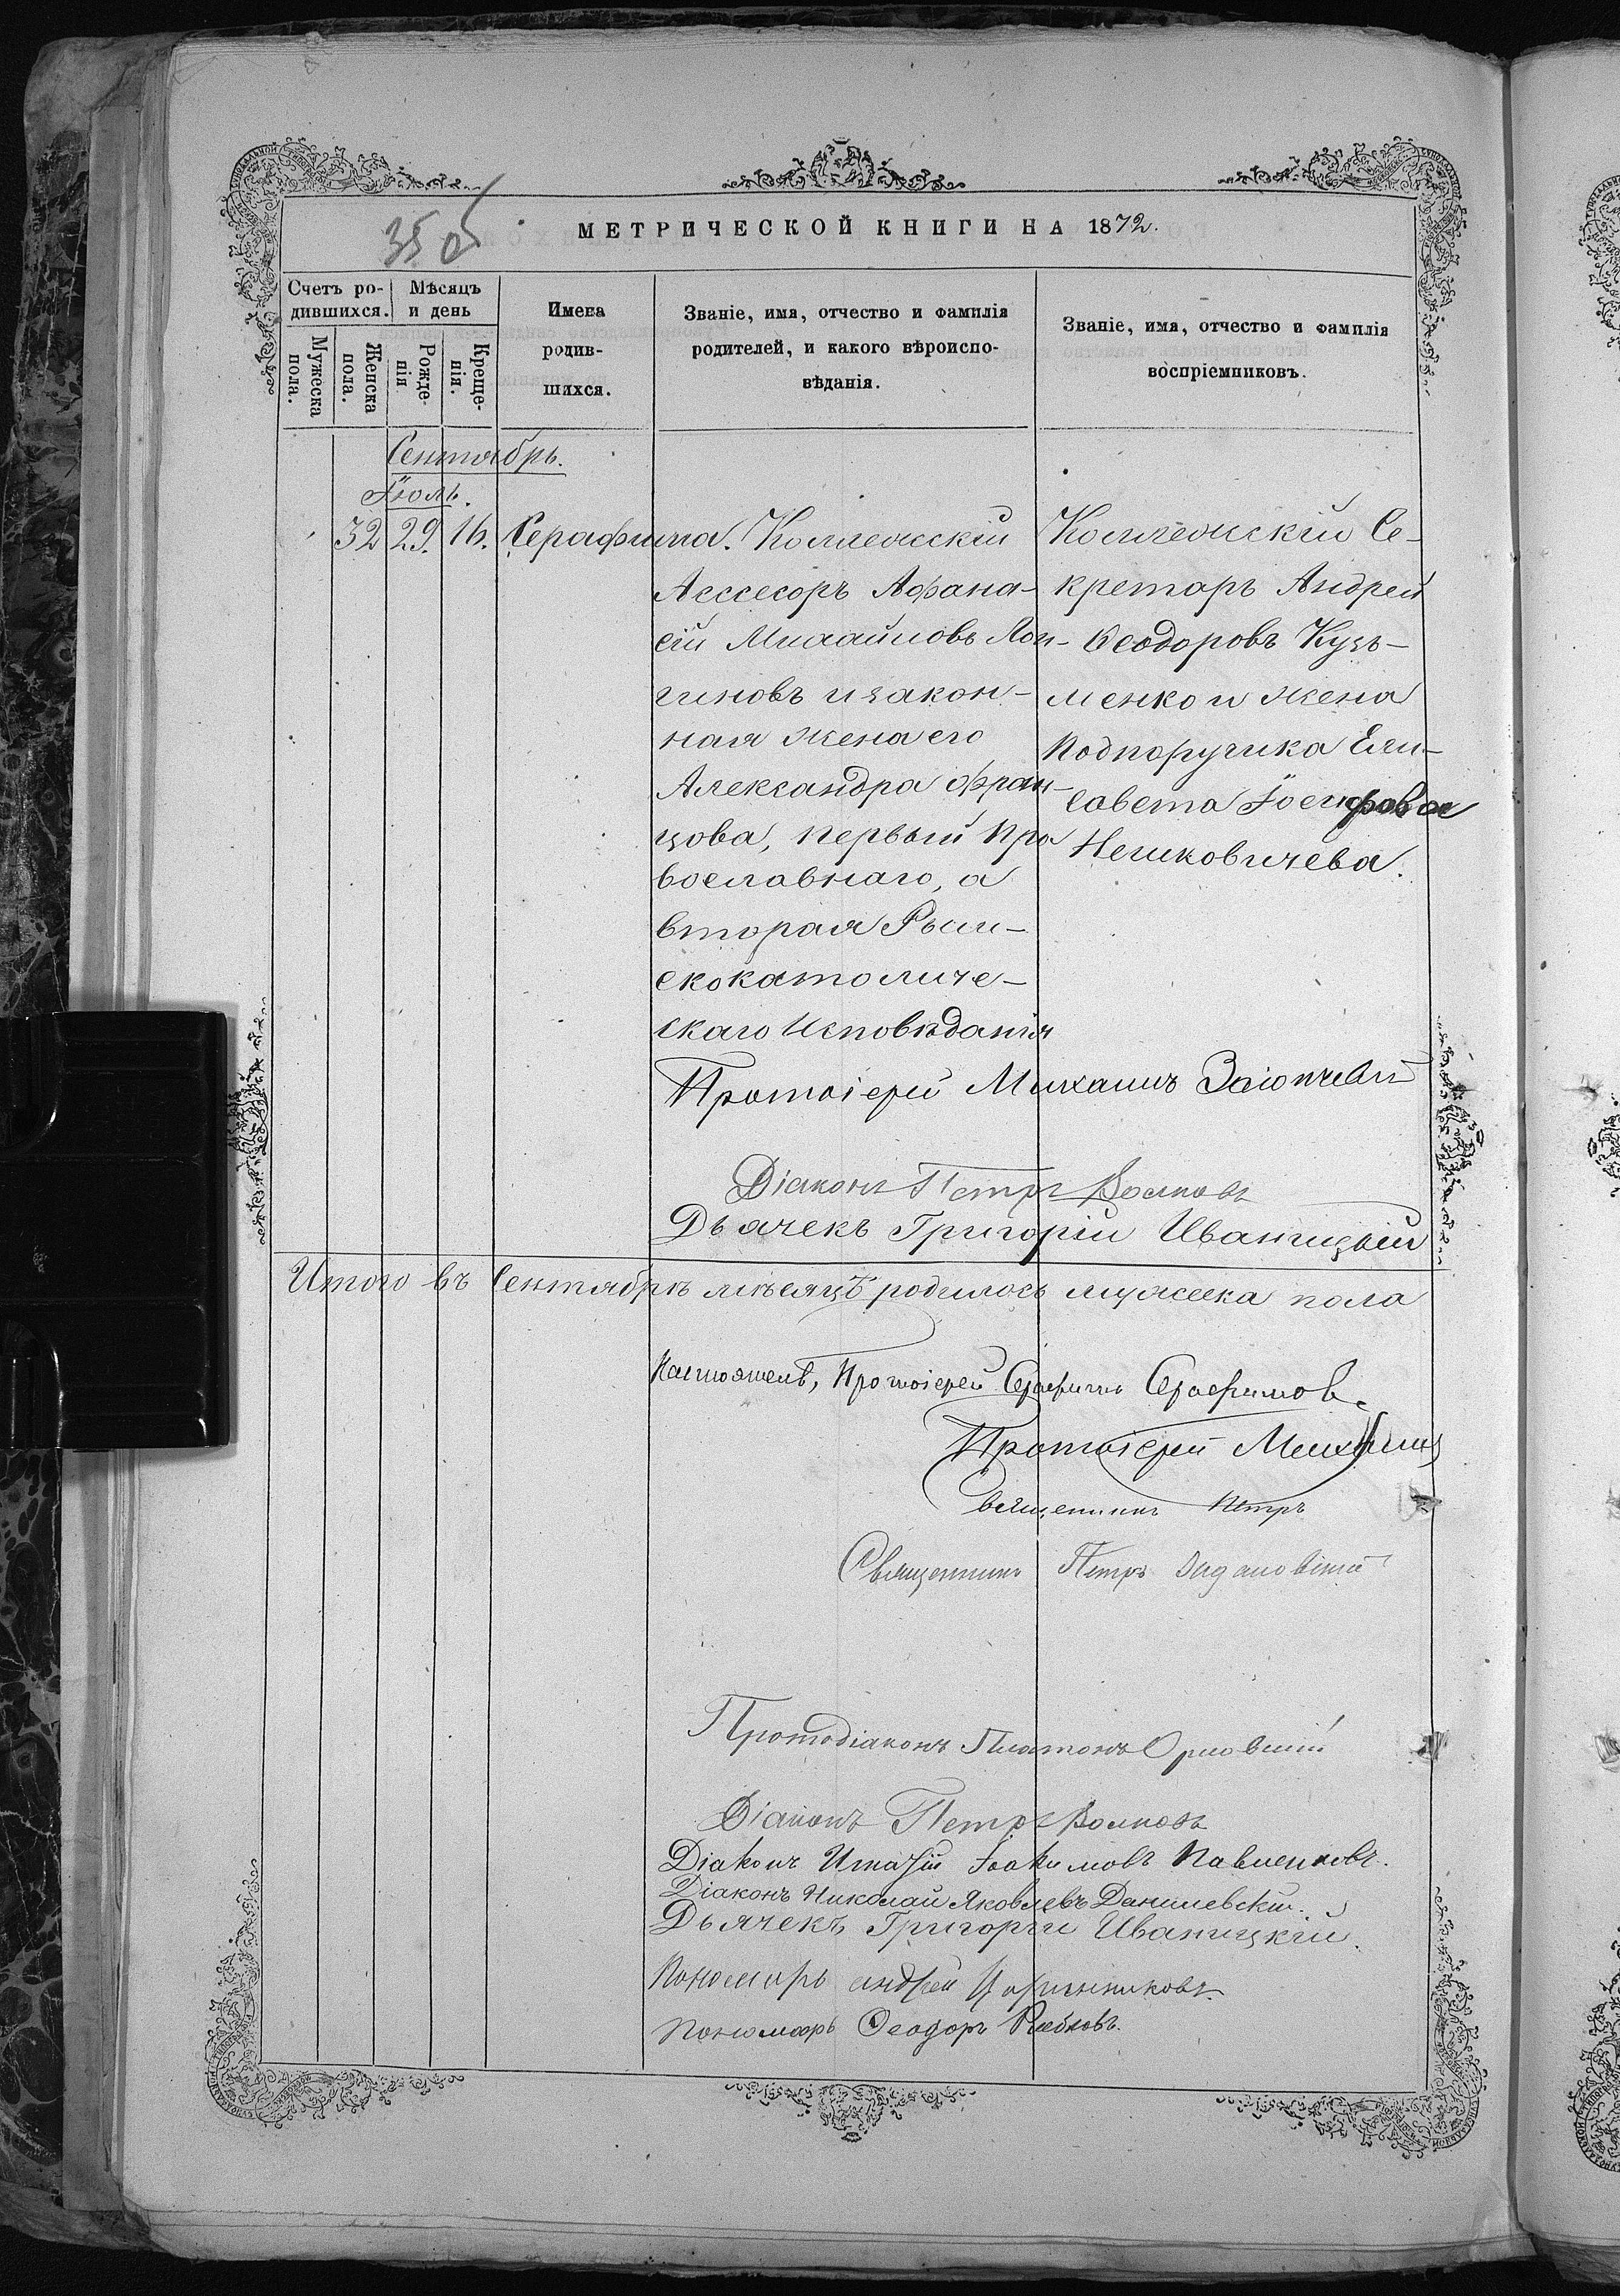 35 об
МЕТРИЧЕСКОЙ КНИГИ НА 1872.
Счетъ ро-
дившихся.
Мѣсяцъ
и день
Мужеска
пола.
Женска
пола.
Рожде-
нія
Креще-
нія.
Имена
родив-
шихся.
Званіе, имя, отчество и фамилія
родителей, и какого вѣроиспо-
вѣданія.
Званіе, имя, отчество и фамилія
воспріемниковъ.
Сентябрь.
Іюль.
32 29. 16. Серафима.
Коллежскій
Ассесоръ Афана-
сій Михайловъ Лон-
гиновъ и закон-
ная жена его
Александра Фран-
цова, первый Пра
вославнаго, а
вторая Рим-
скокатоличе-
скаго Исповѣданія
Коллежскій Се-
кретарь Андрей
Ѳеодоровъ Кузь-
менко и жена
Подпоручика Ели-
савета Іосифова
Нешковичева.
Протоіерей Михаилъ
Діаконъ Петръ Волковъ
Дьячекъ Григорій Иваницкій
Итого въ Сентябрѣ мѣсяцѣ родилось мужеска пола
Настоятель, Протоіерей Серафимъ Серафимовъ.
Протоіерей Михаилъ
Священникъ Петръ
Священникъ Петръ
Протодіаконъ Платонъ Орловскій
Діаконъ Петръ Волковъ
Діаконъ Игнатій Іоакимовъ Павленковъ.
Діаконъ Николай Яковлевъ Данилевскій.
Дьячекъ Григорій Иваницкій.
Пономарь Андрей
Пономарь Ѳеодоръ